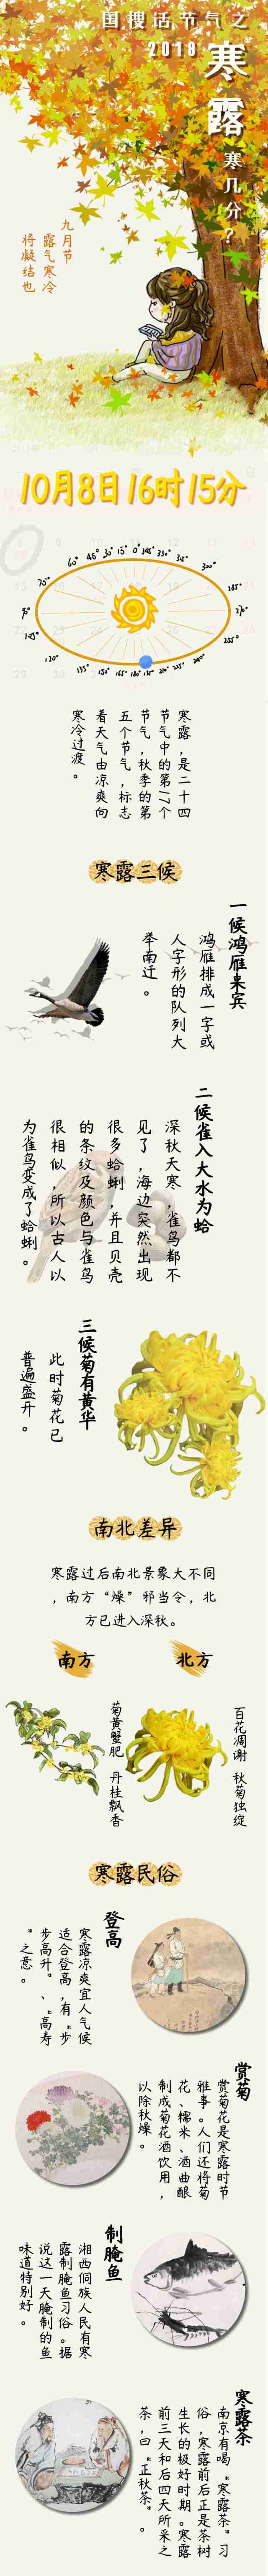 国搜话节气之
2018
寒露
寒几分？
九月节
露气寒冷
将凝结也
10月8日16时15分
寒露，是二十四
节气中的第17个
节气，秋季的第
五个节气，标志
着天气由凉爽向
寒冷过渡。
寒露三候
一候鸿雁来宾
鸿雁排成一字或
人字形的队列大
举南迁。
二候雀入大水为蛤
深秋天寒，雀鸟都不
见了，海边突然出现
很多蛤蜊，并且贝壳
的条纹及颜色与雀鸟
很相似，所以古人以
为雀鸟变成了蛤蜊。
三候菊有黄华
此时菊花已
普遍盛开。
南北差异
寒露过后南北景象大不同
，南方“燥”邪当令，北
方已进入深秋。
南方
北方
菊黄蟹肥 丹桂飘香
百花凋谢 秋菊独绽
寒露民俗
登高
寒露凉爽宜人气候
适合登高，有“步
步高升”、“高寿
”之意。
赏菊
赏菊花是寒露时节
雅事。人们还将菊
花、糯米、酒曲酿
制成菊花酒饮用，
以除秋燥。
制腌鱼
湘西侗族人民有寒
露制腌鱼习俗。据
说这一天腌制的鱼
味道特别好。
寒露茶
南京有喝“寒露茶”习
俗，寒露前后正是茶树
生长的极好时期。寒露
前三天和后四天所采之
茶，曰“正秋茶”。